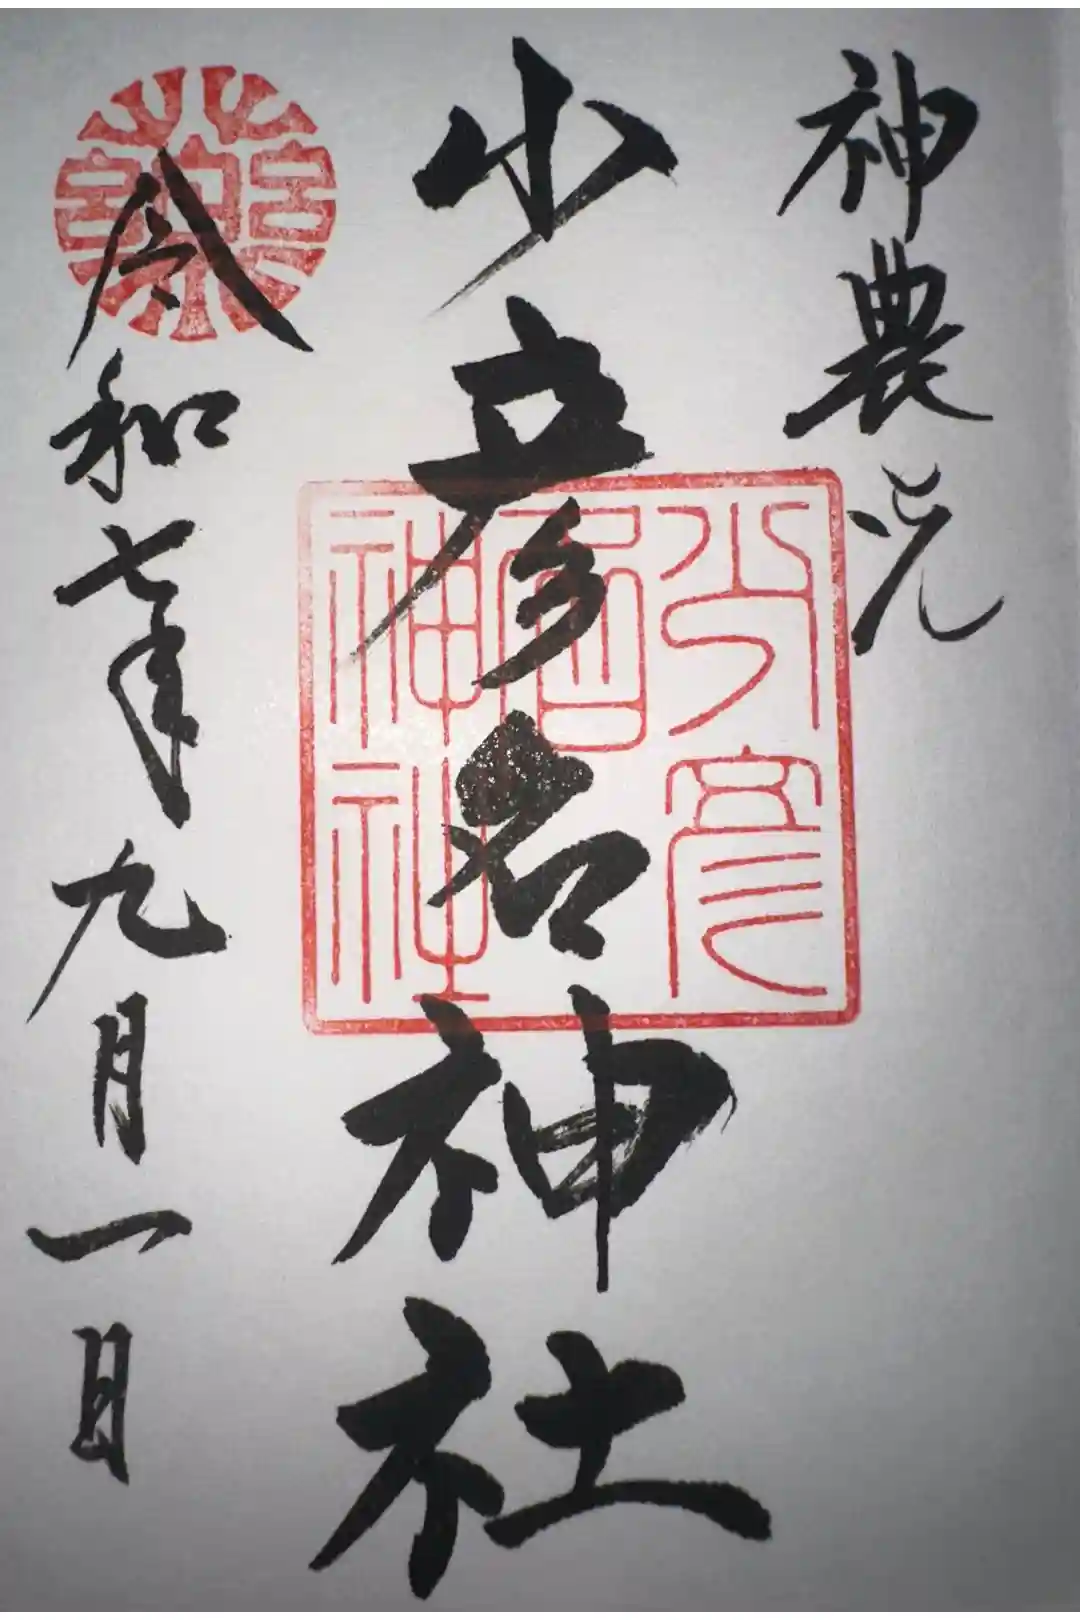 神農
少彦名神社
令和七年九月一日
少彦
名
神社
藥